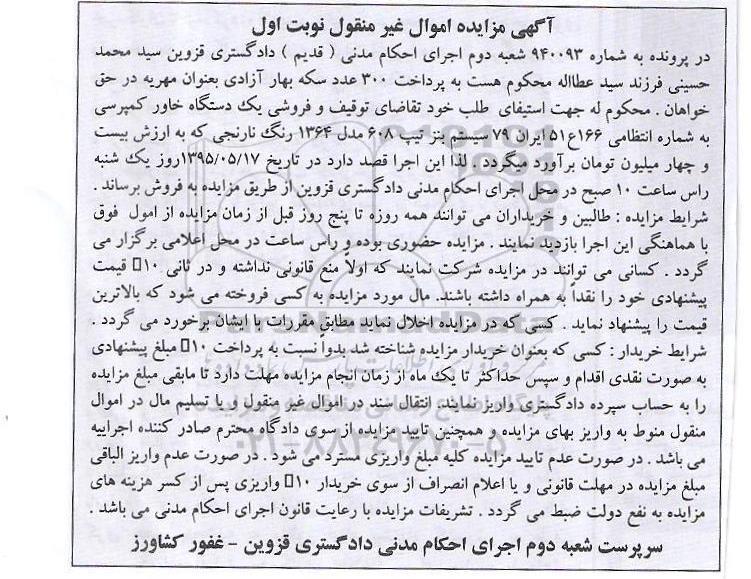 آگهی مزایده اموال غیر منقول نوبت اول
در پرونده به شماره ۹۴۰۰۹۳ شعبه دوم اجرای احکام مدنی ( قدیم ) دادگستری قزوین سید محمد
حسینی فرزند سید عطااله محکوم هست به پرداخت ۳۰۰ عدد سکه بهار آزادی بعنوان مهریه در حق
خواهان . محکوم له جهت استیفای طلب خود تقاضای توقیف و فروشی یک دستگاه خاور کمپرسی
به شماره انتظامی ۱۶۶ع۱۵۱ایران ۷۹ سیستم بنز تیپ ۶۰۸ مدل ۱۳۶۴ رنگ نارنجی که به ارزش بیست
و چهار میلیون تومان برآورد میگردد . لذا این اجرا قصد دارد در تاریخ ۱۳۹۵/۰۵/۱۷روز یک شنبه
راس ساعت ۱۰ صبح در محل اجرای احکام مدنی دادگستری قزوین از طریق مزایده به فروش برساند .
شرایط مزایده : طالبین و خریداران می توانند همه روزه تا پنج روز قبل از زمان مزایده از امول فوق
با هماهنگی این اجرا بازدید نمایند . مزایده حضوری بوده و راس ساعت در محل اعلامی برگزار می
گردد . کسانی می توانند در مزایده شرکت نمایند که اولاً منع قانونی نداشته و در ثانی ۱۰□ قیمت
پیشنهادی خود را نقداً به همراه داشته باشند. مال مورد مزایده به کسی فروخته می شود که بالاترین
قیمت را پیشنهاد نماید . کسی که در مزایده اخلال نماید مطابق مقررات با ایشان برخورد می گردد .
شرایط خریدار : کسی که بعنوان خریدار مزایده شناخته شد بدواً نسبت به پرداخت ۱۰□ مبلغ پیشنهادی
به صورت نقدی اقدام و سپس حداکثر تا یک ماه از زمان انجام مزایده مهلت دارد تا مابقی مبلغ مزایده
را به حساب سپرده دادگستری واریز نمایند. انتقال سند در اموال غیر منقول و یا تسلیم مال در اموال
منقول منوط به واریز بهای مزایده و همچنین تایید مزایده از سوی دادگاه محترم صادر کننده اجراییه
می باشد . در صورت عدم تایید مزایده کلیه مبلغ واریزی مسترد می شود . در صورت عدم واریز الباقی
مبلغ مزایده در مهلت قانونی و یا اعلام انصراف از سوی خریدار ۱۰□ واریزی پس از کسر هزینه های
مزایده به نفع دولت ضبط می گردد . تشریفات مزایده با رعایت قانون اجرای احکام مدنی می باشد .
سرپرست شعبه دوم اجرای احکام مدنی دادگستری قزوین - غفور کشاورز
ParsNamadData
۰۲۱-۸۸۳۴۹۶۷۰-۵